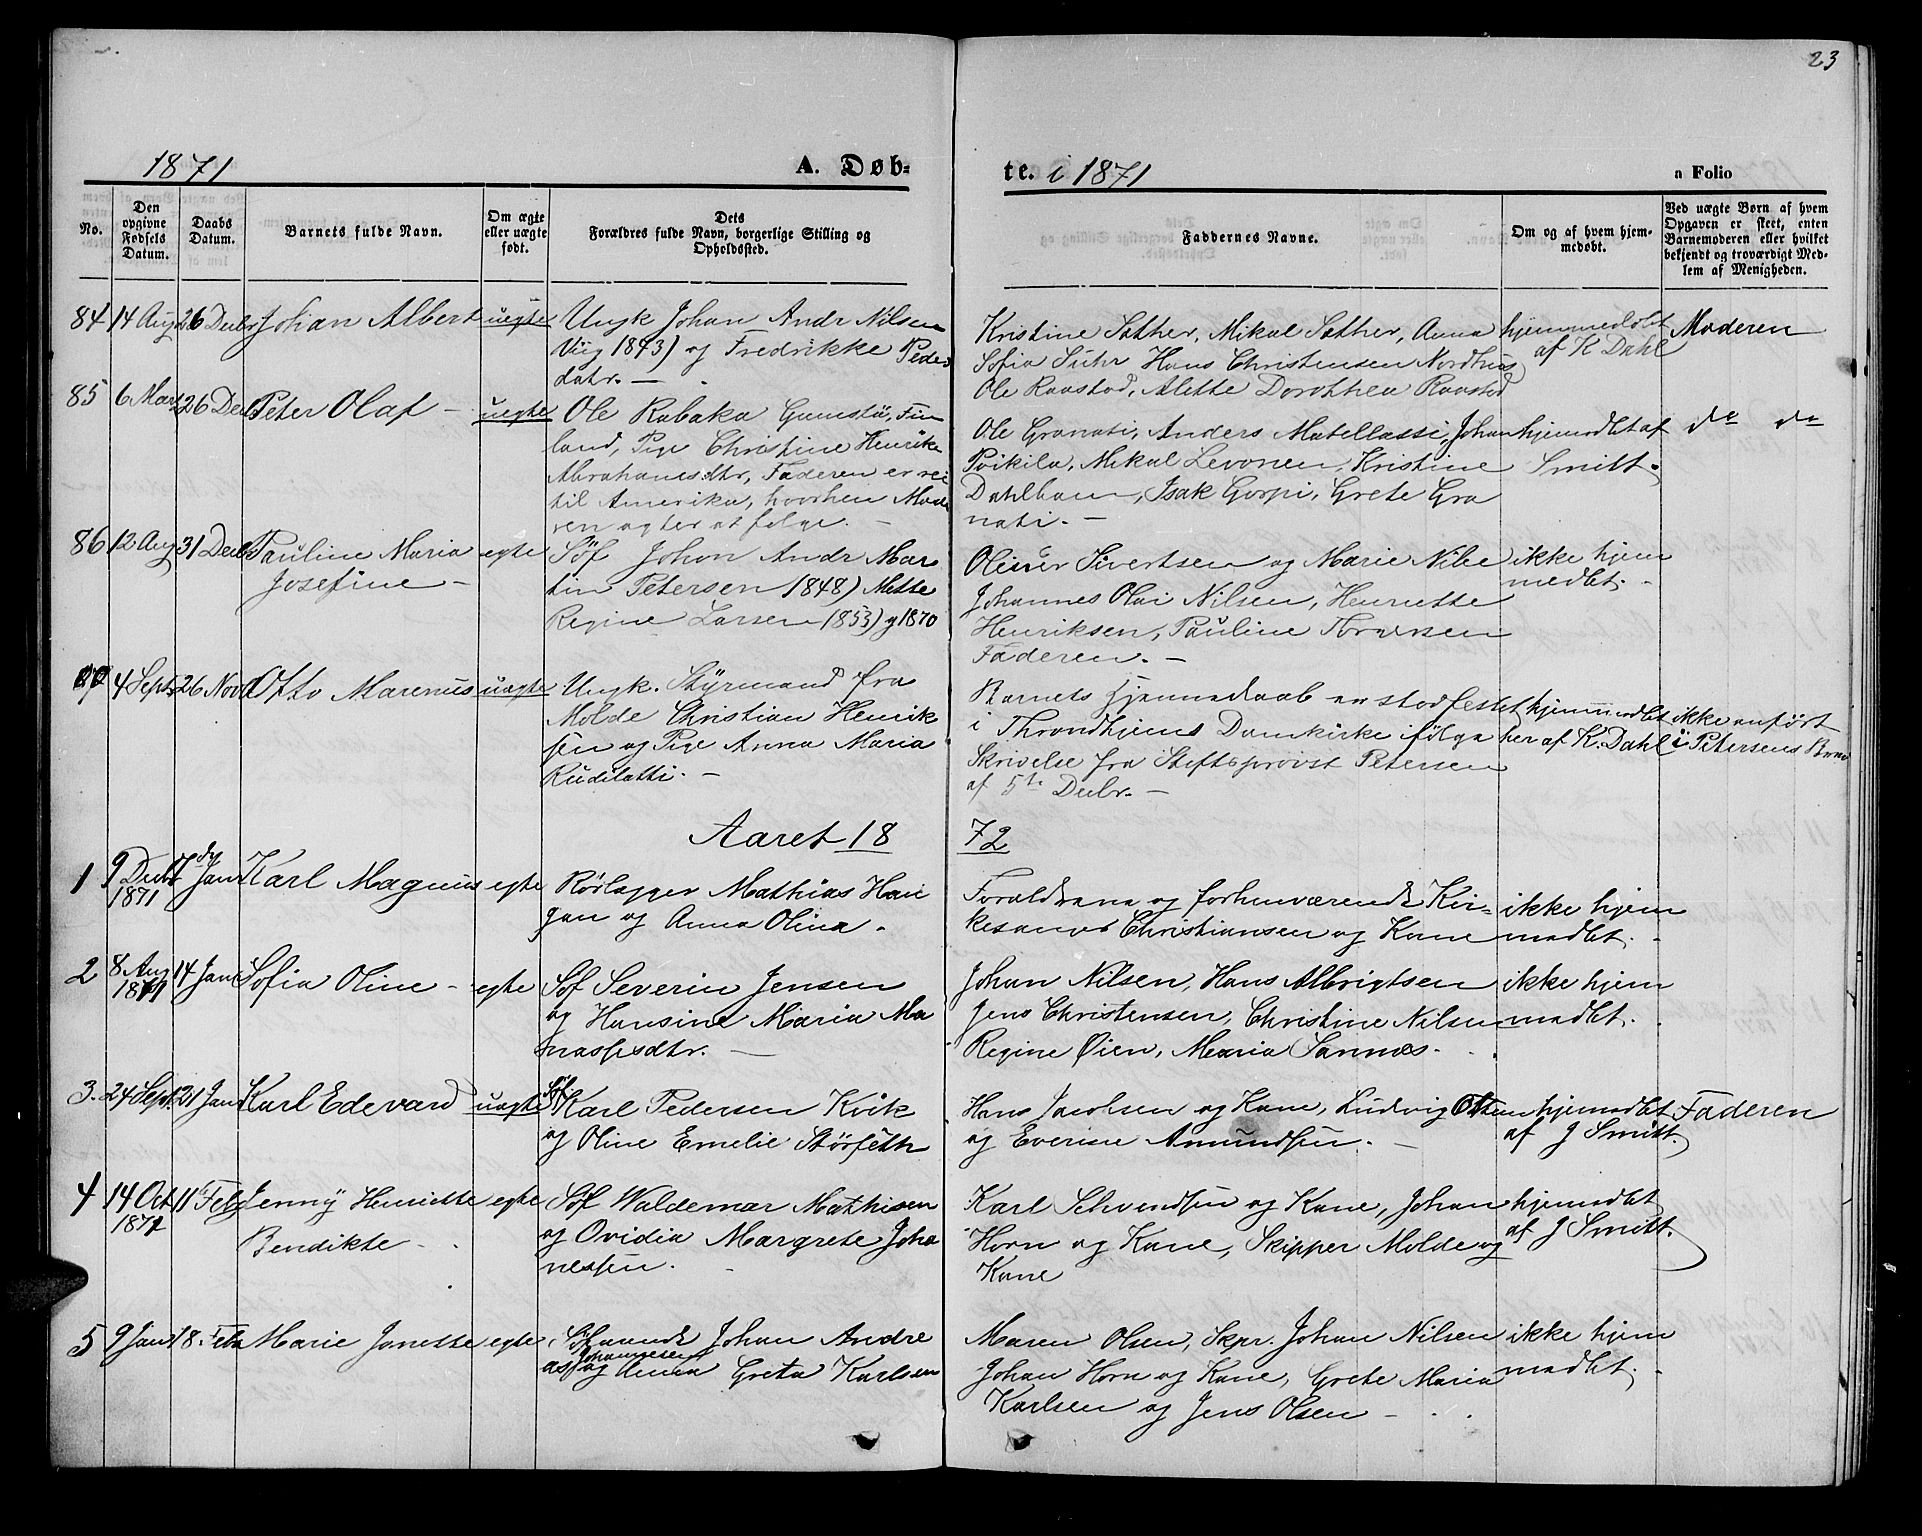 23
1871
A. Døb-
te. i 1871
a Folio
No.
Den opgivne Fødsels Datum.
Daabs Datum.
Barnets fulde Navn.
Om ægte eller uægte født.
Dets Forældres fulde Navn, borgerlige Stilling og Opholdssted.
Faddernes Navne.
Om og af hvem hjemmedøbt.
Ved uægte Børn af hvem Opgaven er skeet, enten Barnemoderen eller hvilket bekjendt og troværdigt Medlem af Menigheden.
84 14 Aug 26 Decbr Johan Albert uegte
Ungk Johan Andr Nilsen
Viig 1843) og Fredrikke Peders
datr. —
Kristine Sather, Mikal Sather, Anna
Sofia Suhr Hans Christensen Nordhus
Ole Raastad, Alette Dorothea Raastad
hjemmedøbt
af K Dahl
Moderen
85 6 Mars 26 Dec Peter Olaf — uegte
Ole Rabaka Gamstä, Fin
land, Pige Christine Henrike
Abrahamsdtr, Faderen er rei
til Amerika, hvorhen Mode
ren agter at følge. —
Ole Granati, Anders Matellassi, Johan
Poikila, Mikal Levonen, Kristine
Dahlbam, Isak Gorpi, Grete Gra
nati. —
hjemdbt af
Smitt.
do do
86 12 Aug 31 Decbr Pauline Maria egte
Josefine —
Søf Johan Andr Mar
tin Petersen 1848) Mette
Regine Larsen 1853) g 1870
Oliver Sivertsen og Marie Nibe
Johannes Olai Nilsen, Henriette
Henriksen, Pauline Thoresen
Faderen. —
ikke hjem
medbt. -
87 4 Septr 26 Novb Otto Marenius uægte
Ungk. Styrmand fra
Molde Christian Henrik
sen og Pige Anna Maria
Rudilatti. —
Barnets Hjemmedaab er stadfestet
i Throndhjems Domkirke ifølge
Skrivelse fra Stiftsprovst Petersen
af 5te Decbr. —
hjemmedbt
her af K. Dahl
ikke anført
i Petersens Brev
Aaret 18
72
1 9 Decbr 7 Jan Karl Magnus egte
1871
Rørlægger Mathias Hau
gan og Anna Olina.
Foraldrene og forhenværende Kir-
kesanger Christiansen og Kone
ikke hjem
medbt.
2 8 Aug 14 Jan Sofia Oline - egte
1871
Søf Severin Jensen
og Hansine Maria Ma
nassesdtr. —
Johan Nilsen, Hans Albrigtsen
Jens Christensen, Christine Nilsen
Regine Øien, Maria Sannes.
ikke hjem
medbt.
3. 24 Sept. 21 Jan Karl Edevard uegte
Søf Karl Pedersen Kvik
og Oline Emelie Størseth
Hans Jacobsen og Kone, Ludvig Olsen
og Everine Amundsen. —
hjemdbt
af J Smitt.
Faderen
4 14 Oct 11 Feb Jenny Henriette egte
1871
Bendikte -
Søf Waldemar Mathisen
og Ovidia Margrete Joha
nesen.
Karl Schvendsen og Kone, Johan
Horn og Kone, Skipper Molde og
Kone
hjemdbt
af J Smitt.
5 9 Jan 18. Feb Marie Janette egte
Søfaarende Johan Andre
Johannesen
as og Anna Greta Karlsen
Maren Olsen, Skpr. Johan Nilsen
Johan Horn og Kone, Grete Maria
Karlsen og Jens Olsen —
ikke hjem
medbt.